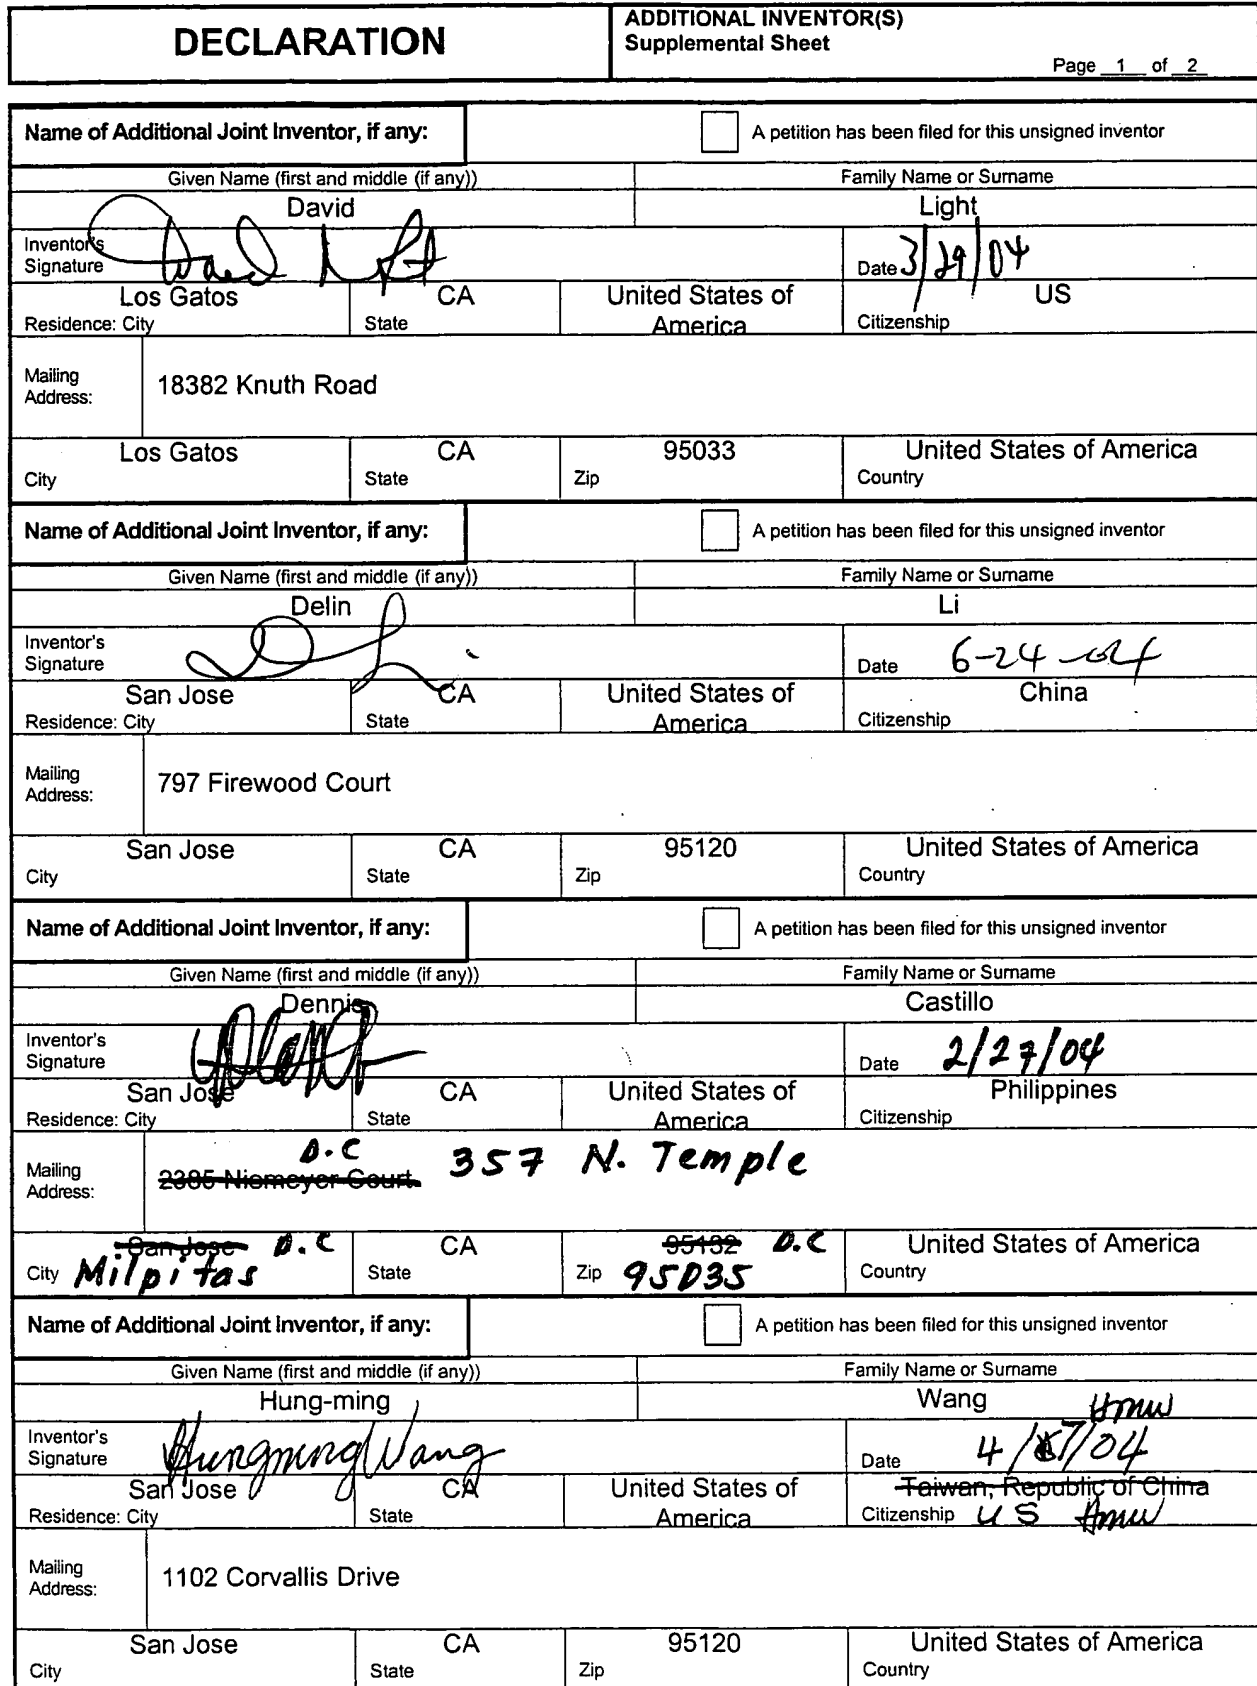 DECLARATION
ADDITIONAL INVENTOR(S)
Supplemental Sheet
Page 1 of 2
Name of Additional Joint Inventor, if any:
A petition has been filed for this unsigned inventor
Given Name (first and middle (if any))
Family Name or Surname
David
Light
Inventor's
Signature
Date 3/29/04
Los Gatos
CA
United States of
America
US
Residence: City
State
Citizenship
Mailing
Address:
18382 Knuth Road
Los Gatos
CA
95033
United States of America
City
State
Zip
Country
Name of Additional Joint Inventor, if any:
A petition has been filed for this unsigned inventor
Given Name (first and middle (if any))
Family Name or Surname
Delin
Li
Inventor's
Signature
Date 6-24-04
San Jose
CA
United States of
America
China
Residence: City
State
Citizenship
Mailing
Address:
797 Firewood Court
San Jose
CA
95120
United States of America
City
State
Zip
Country
Name of Additional Joint Inventor, if any:
A petition has been filed for this unsigned inventor
Given Name (first and middle (if any))
Family Name or Surname
Dennis
Castillo
Inventor's
Signature
Date 2/27/04
San Jose
CA
United States of
America
Philippines
Residence: City
State
Citizenship
Mailing
Address:
D.C
2385 Niemeyer Court 357 N. Temple
San Jose D.C
CA
95132 D.C
United States of America
City Milpitas
State
Zip 95035
Country
Name of Additional Joint Inventor, if any:
A petition has been filed for this unsigned inventor
Given Name (first and middle (if any))
Family Name or Surname
Hung-ming
Wang
HMW
Inventor's
Signature
Hungming Wang
Date 4/7/04
San Jose
CA
United States of
America
Taiwan, Republic of China
Residence: City
State
Citizenship US HMW
Mailing
Address:
1102 Corvallis Drive
San Jose
CA
95120
United States of America
City
State
Zip
Country